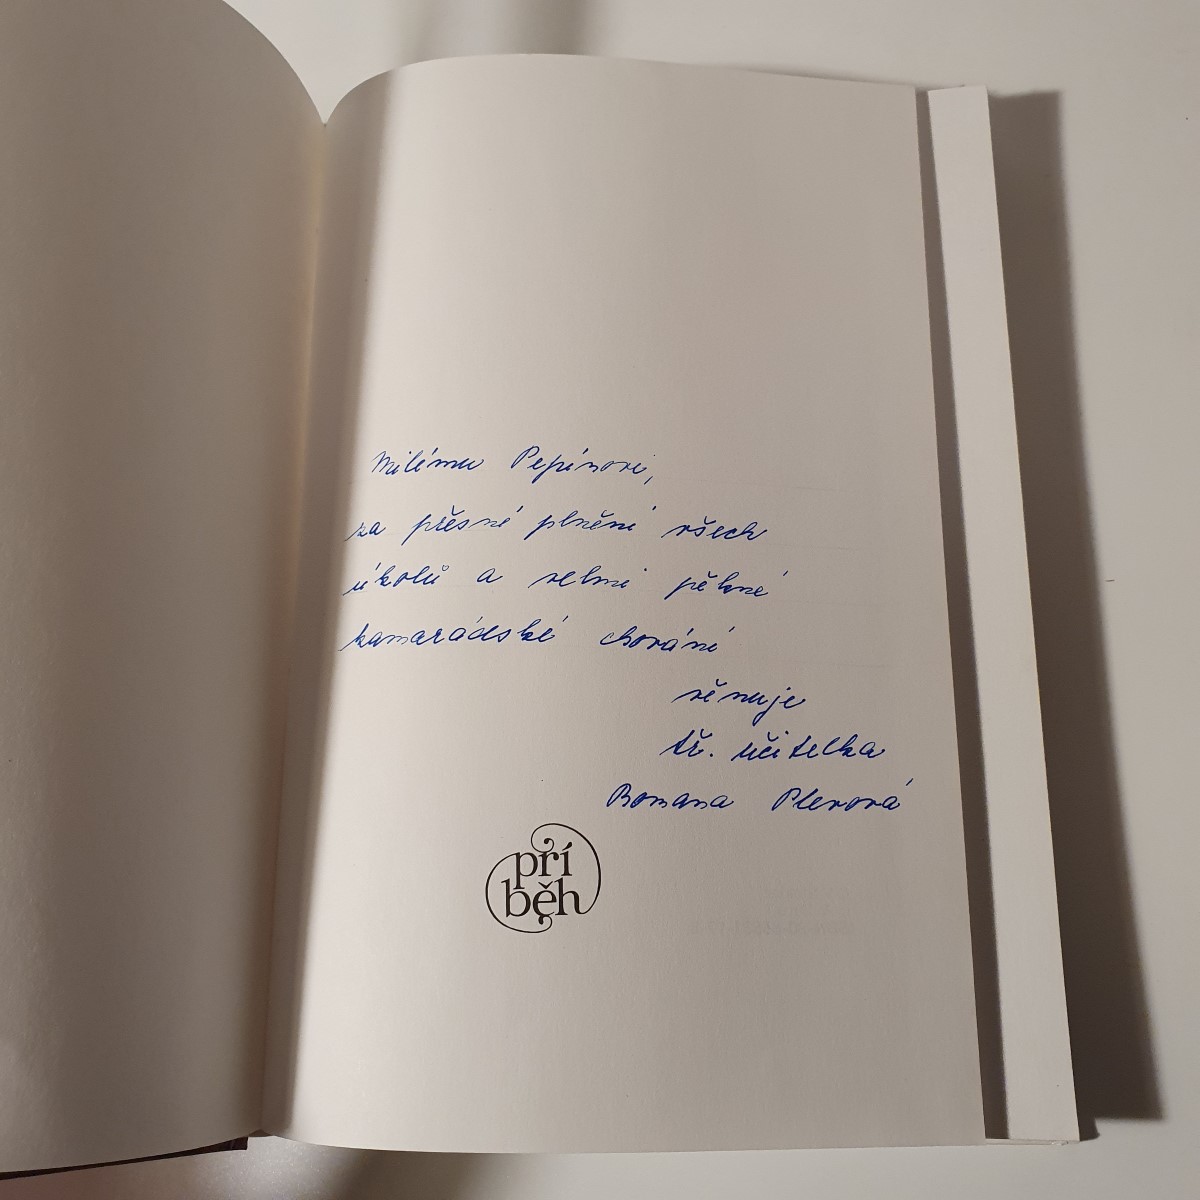 Milému Pepínovi,
za přesné plnění všech
úkolů a velmi pěkné
kamarádské chování
věnuje
tř. učitelka
Romana Plevová
pří
běh